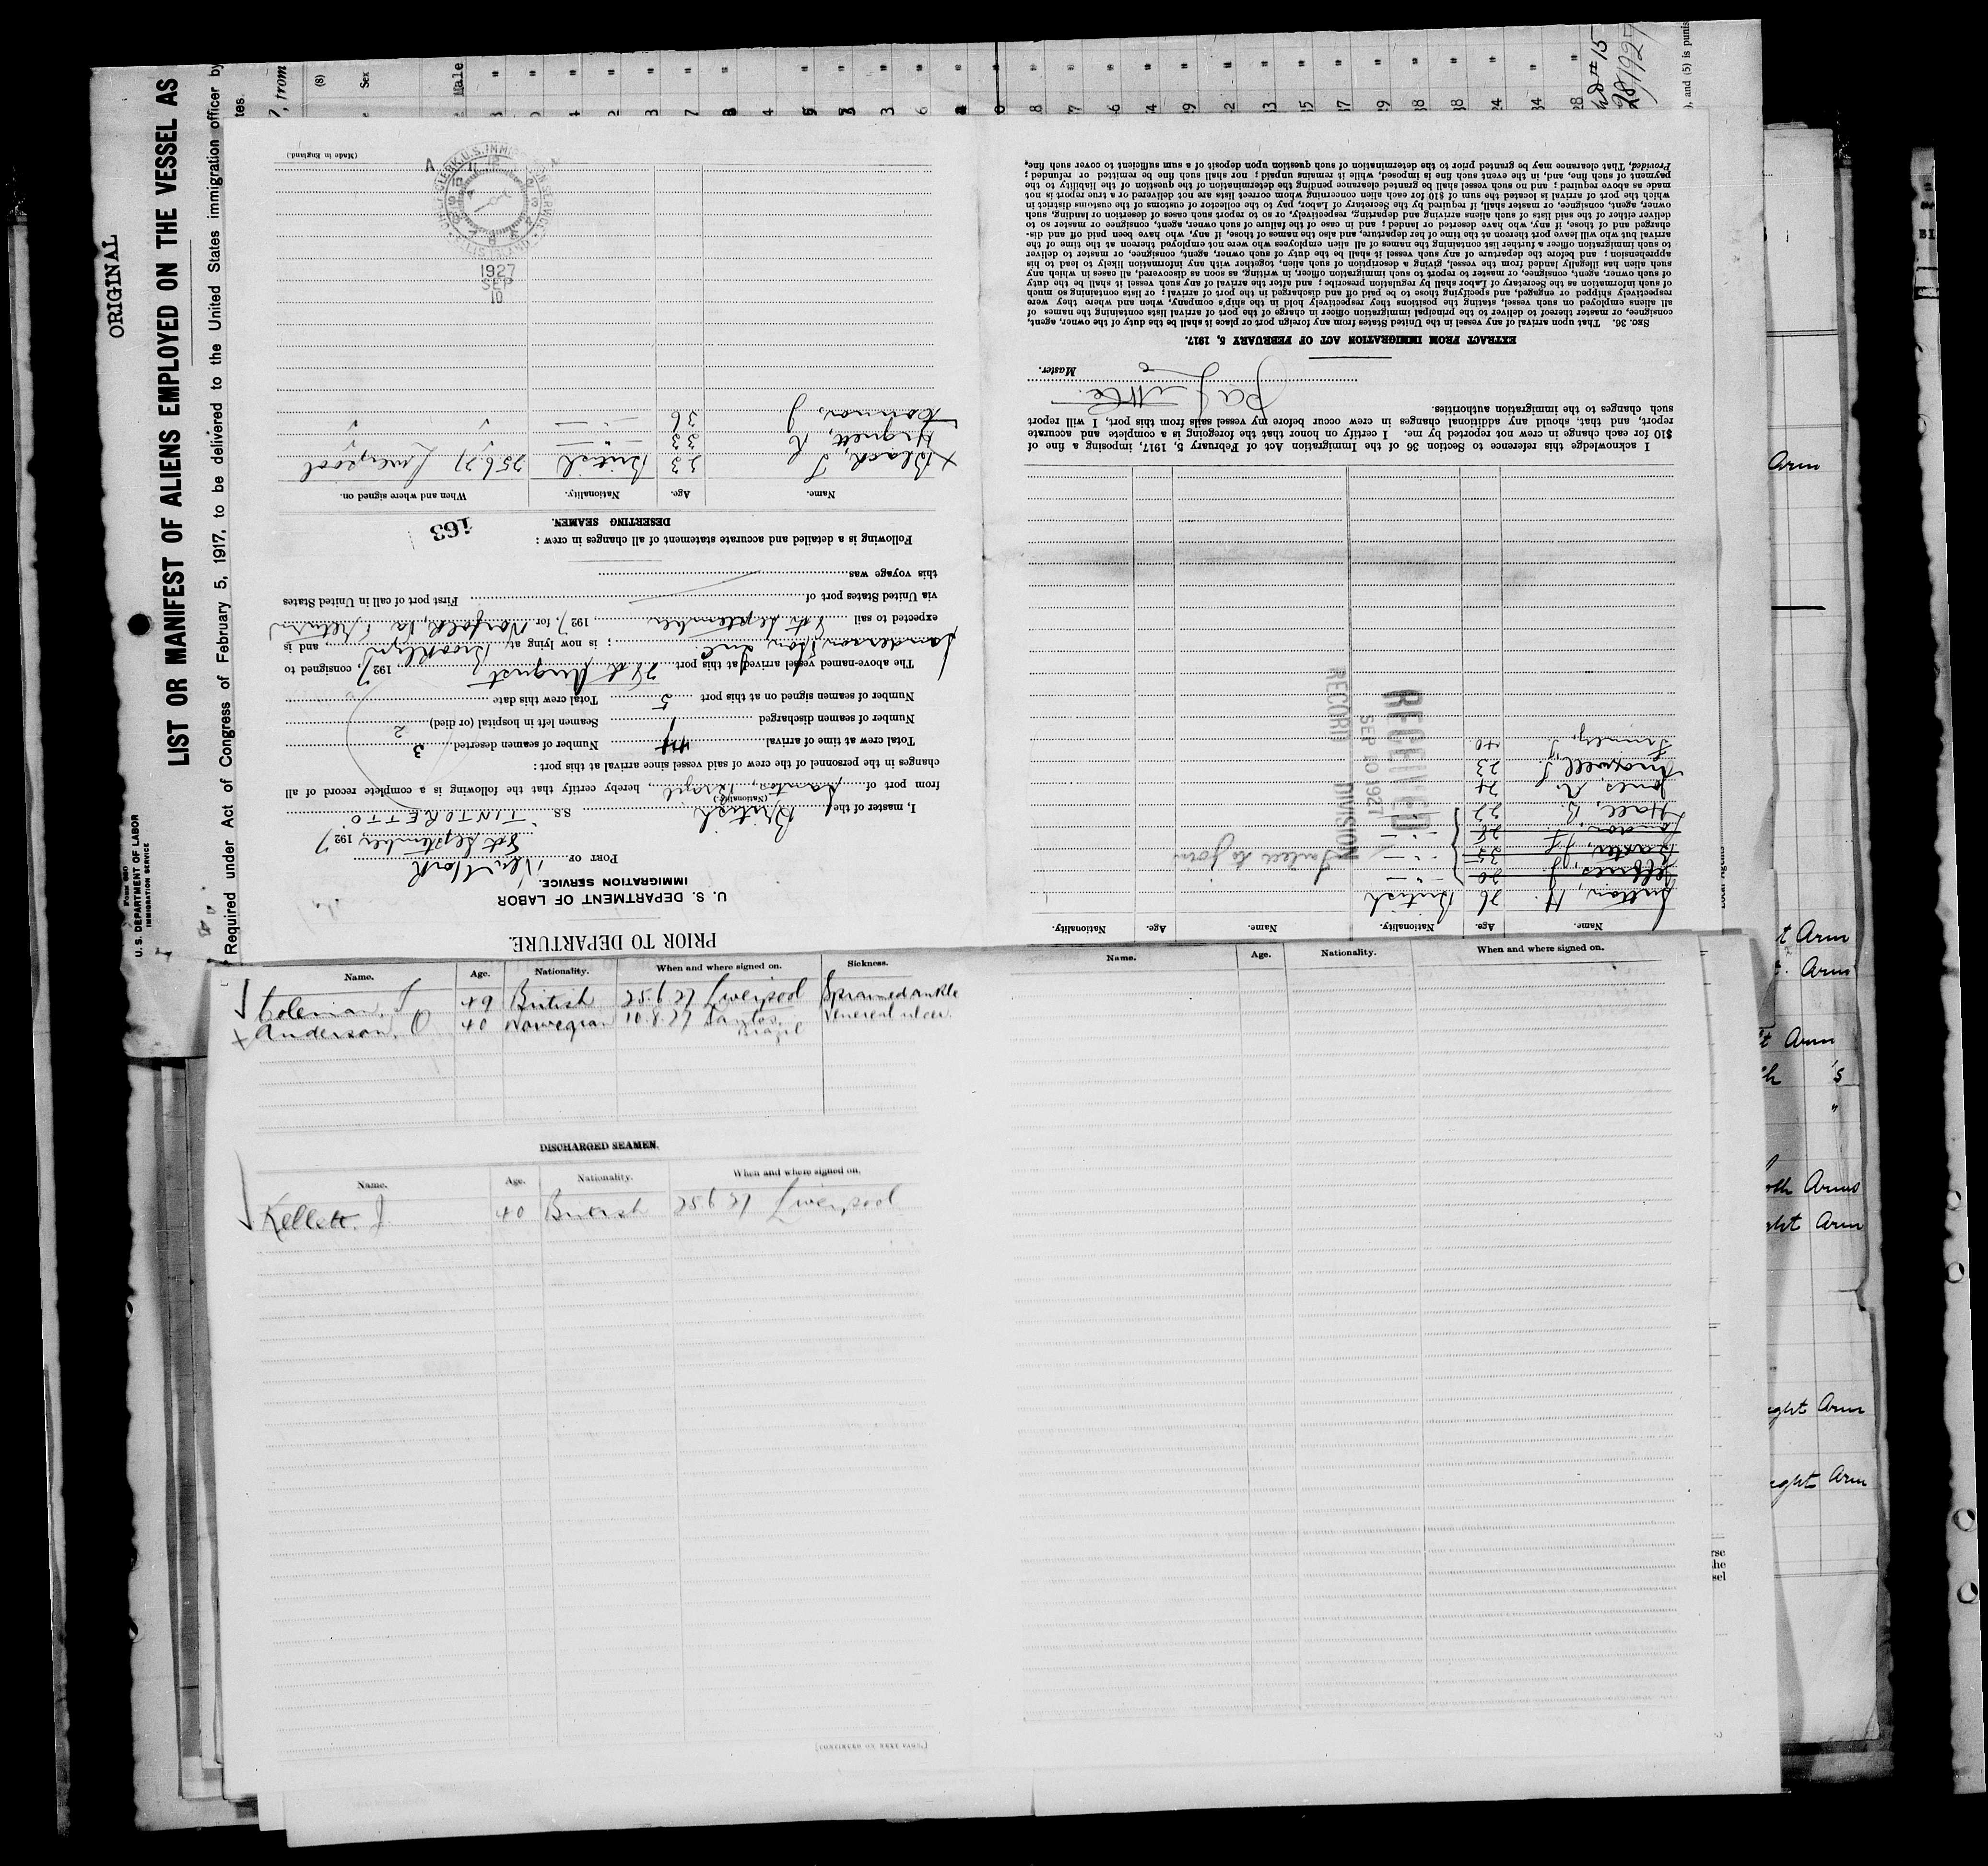 ORIGINAL
LIST OR MANIFEST OF ALIENS EMPLOYED ON THE VESSEL AS
Required under Act of Congress of February 5, 1917, to be delivered to the United States immigration officer by
U. S. DEPARTMENT OF LABOR
IMMIGRATION SERVICE
(8)
Sex
Male
PRIOR TO DEPARTURE.
U. S. DEPARTMENT OF LABOR
IMMIGRATION SERVICE.
PORT OF New York
8th September, 1927
I, master of the British SS. TINTORETTO
(Nationality.)
from port of Santos, Brazil, hereby certify that the following is a complete record of all
changes in the personnel of the crew of said vessel since arrival at this port:
Total crew at time of arrival 44 Number of seamen deserted 3
Number of seamen discharged 1 Seamen left in hospital (or died) 2
Number of seamen signed on at this port 5 Total crew this date
The above-named vessel arrived at this port August 1927, consigned to
Sanderson & Son, Inc. ; is now lying at Brooklyn, and is
expected to sail 8th September, 1927, for Norfolk, Va & return
via United States port of First port of call in United States
this voyage was
Following is a detailed and accurate statement of all changes in crew:
163
DESERTING SEAMEN.
Name. Age. Nationality. When and where signed on.
x Black, J 23 British 25.6.27 Liverpool
33 -"-
Connor, J 36 -"-
CHIEF CLERK, U.S. IMMIGRATION SERVICE
1927
SEP
10
(Made in England.)
Name. Age. Nationality. Name. Age. Nationality.
Sutton, H. 26 British
Jeffries, J 20 -"-
Baxter, 35 -"- Failed to join
28 -"-
Hall, B. 22
Jones R. 24
Maxwell J 23
40
RECEIVED
SEP 10 1927
RECORD DIVISION
I acknowledge this reference to Section 36 of the Immigration Act of February 5, 1917, imposing a fine of
$10 for each change in crew not reported by me. I certify on honor that the foregoing is a complete and accurate
report, and that, should any additional changes in crew occur before my vessel sails from this port, I will report
such changes to the immigration authorities.
Master.
EXTRACT FROM IMMIGRATION ACT OF FEBRUARY 5, 1917.
SEC. 36. That upon arrival of any vessel in the United States from any foreign port or place it shall be the duty of the owner, agent,
consignee, or master thereof to deliver to the principal immigration officer in charge of the port of arrival lists containing the names of
all aliens employed on such vessel, stating the positions they respectively hold in the ship's company, when and where they were
respectively shipped or engaged, and specifying those to be paid off and discharged in the port of arrival; or lists containing so much
of such information as the Secretary of Labor shall by regulation prescribe; and after the arrival of any such vessel it shall be the duty
of such owner, agent, consignee, or master to report to such immigration officer, in writing, as soon as discovered, all cases in which any
such alien has illegally landed from the vessel, giving a description of such alien, together with any information likely to lead to his
apprehension; and before the departure of any such vessel it shall be the duty of such owner, agent, consignee, or master to deliver
to such immigration officer a further list containing the names of all alien employees who were not employed thereon at the time of the
arrival but who will leave port thereon at the time of her departure, and also the names of those, if any, who have been paid off and dis-
charged and of those, if any, who have deserted or landed; and in case of the failure of such owner, agent, consignee, or master so to
deliver either of the said lists of such aliens arriving and departing, respectively, or so to report such cases of desertion or landing, such
owner, agent, consignee, or master shall, if required by the Secretary of Labor, pay to the collector of customs of the customs district in
which the port of arrival is located the sum of $10 for each alien concerning whom correct lists are not delivered or a true report is not
made as above required; and no such vessel shall be granted clearance pending the determination of the question of the liability to the
payment of such fine, and, in the event such fine is imposed, while it remains unpaid; nor shall such fine be remitted or refunded;
Provided, That clearance may be granted prior to the determination of such question upon deposit of a sum sufficient to cover such fine.
Name. Age. Nationality. When and where signed on. Sickness.
Coleman, J 49 British 25.6.27 Liverpool Sprained ankle
x Anderson, O 40 Norwegian 10.8.27 Santos, Brazil Venereal ulcer.
DISCHARGED SEAMEN.
Name. Age. Nationality. When and where signed on.
Kellett. J. 40 British 25 6 27 Liverpool
[CONTINUED ON NEXT PAGE.]
Name. Age. Nationality. When and where signed on.
Arm
t Arm
Arm
Arm
Arms
ght Arm
ght Arm
ght Arm